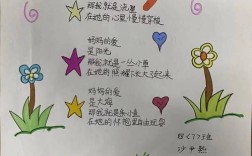 那我就是流星
在她的心里慢慢穿梭
妈妈的爱
是阳光
那我就是一丛小草
在她的照耀下长大了起来
妈妈的爱
是大海
那我就是条小鱼
在她的怀抱里自由玩耍
四(7)班